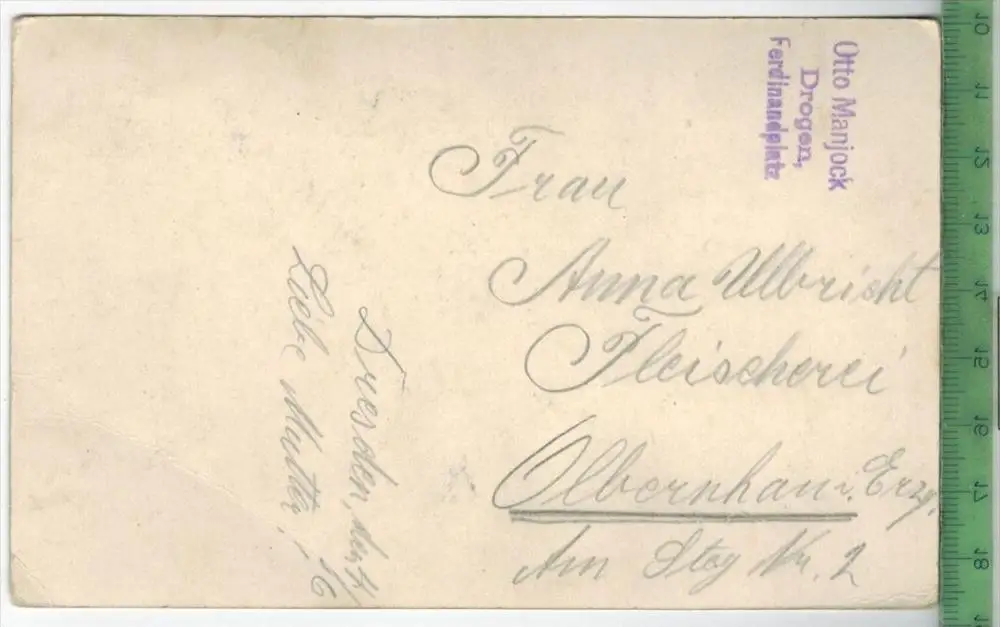 Otto Manjock
Drogen,
Ferdinandplatz
Frau
Anna Ulbricht
Fleischerei
Olbernhau i. Erzg.
Am Steg Nr. 2
Dresden, den 4/6
Liebe Mutter!
10
11
12
13
14
15
16
17
18